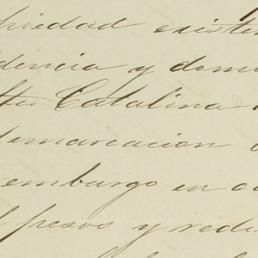 piedad existen
dencia y domi
Catalina
demarcacion
embargo en
pesos y redi